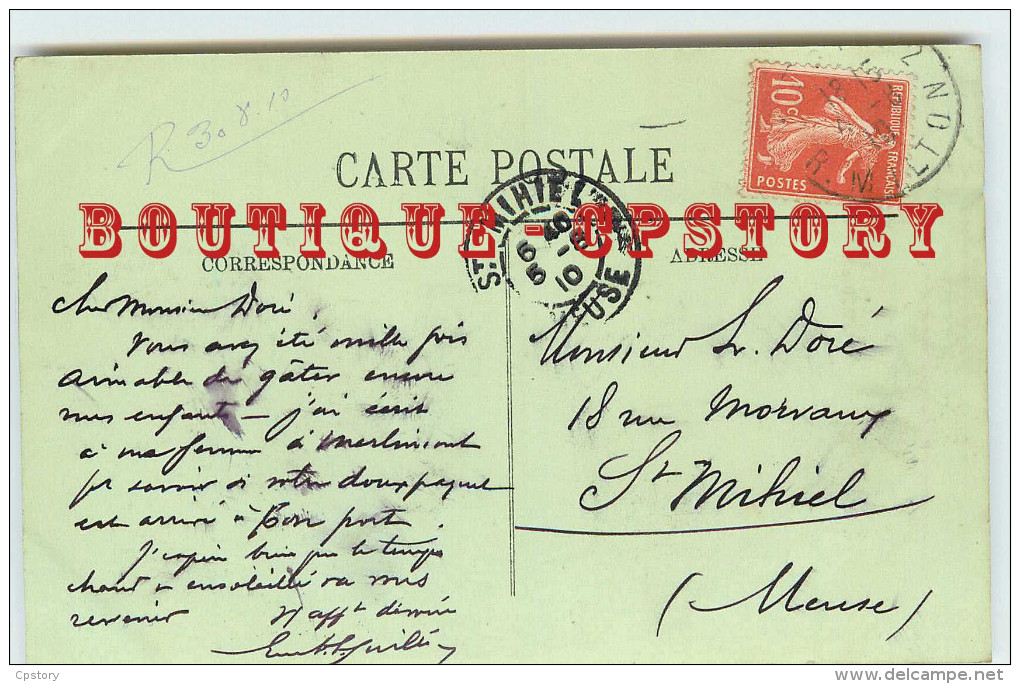 R 30.8.10
CARTE POSTALE
10c
REPUBLIQUE FRANCAISE
POSTES
ST MIHIEL
MEUSE
BOUTIQUE - CPSTORY
CORRESPONDANCE
ADRESSE
Cher Monsieur Doré,
Vous avez été mille fois
aimable de gâter encore
mes enfants – j'ai écrit
à ma femme à Merlimont
pr savoir si votre doux paquet
est arrivé à bon port.
J'espère bien que le temps
chaud & ensoleillé va nous
revenir
Vr afft dévoué
Monsieur Lr. Doré
18 rue Morvaux
St Mihiel
(Meuse)
Cpstory
www.delcampe.net